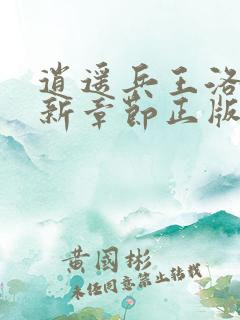 逍遥兵王洛
新章节正版
黄国彬
未经同意禁止转载